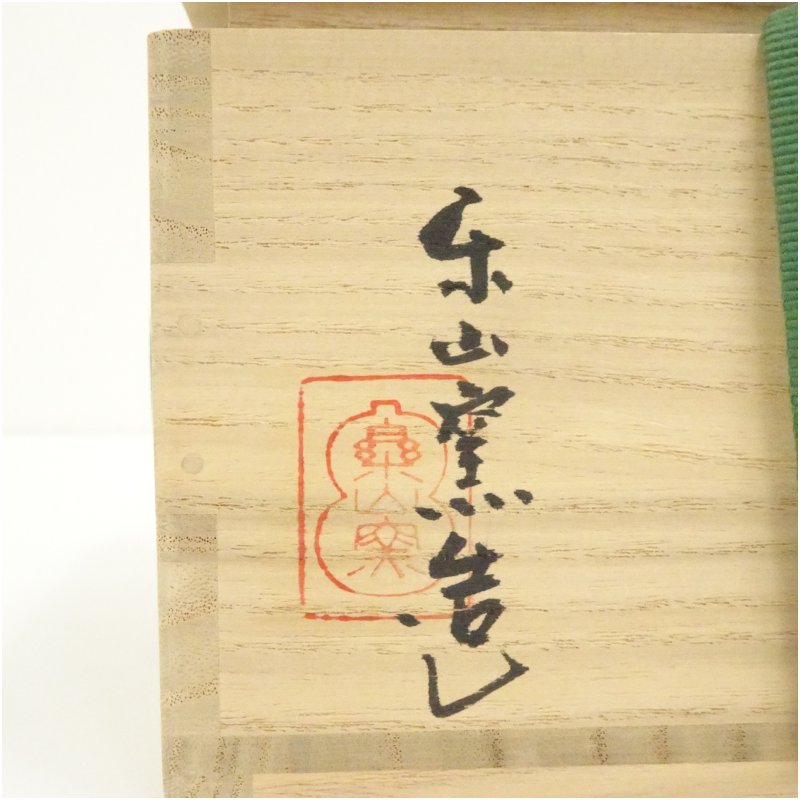 楽山窯造
楽山窯